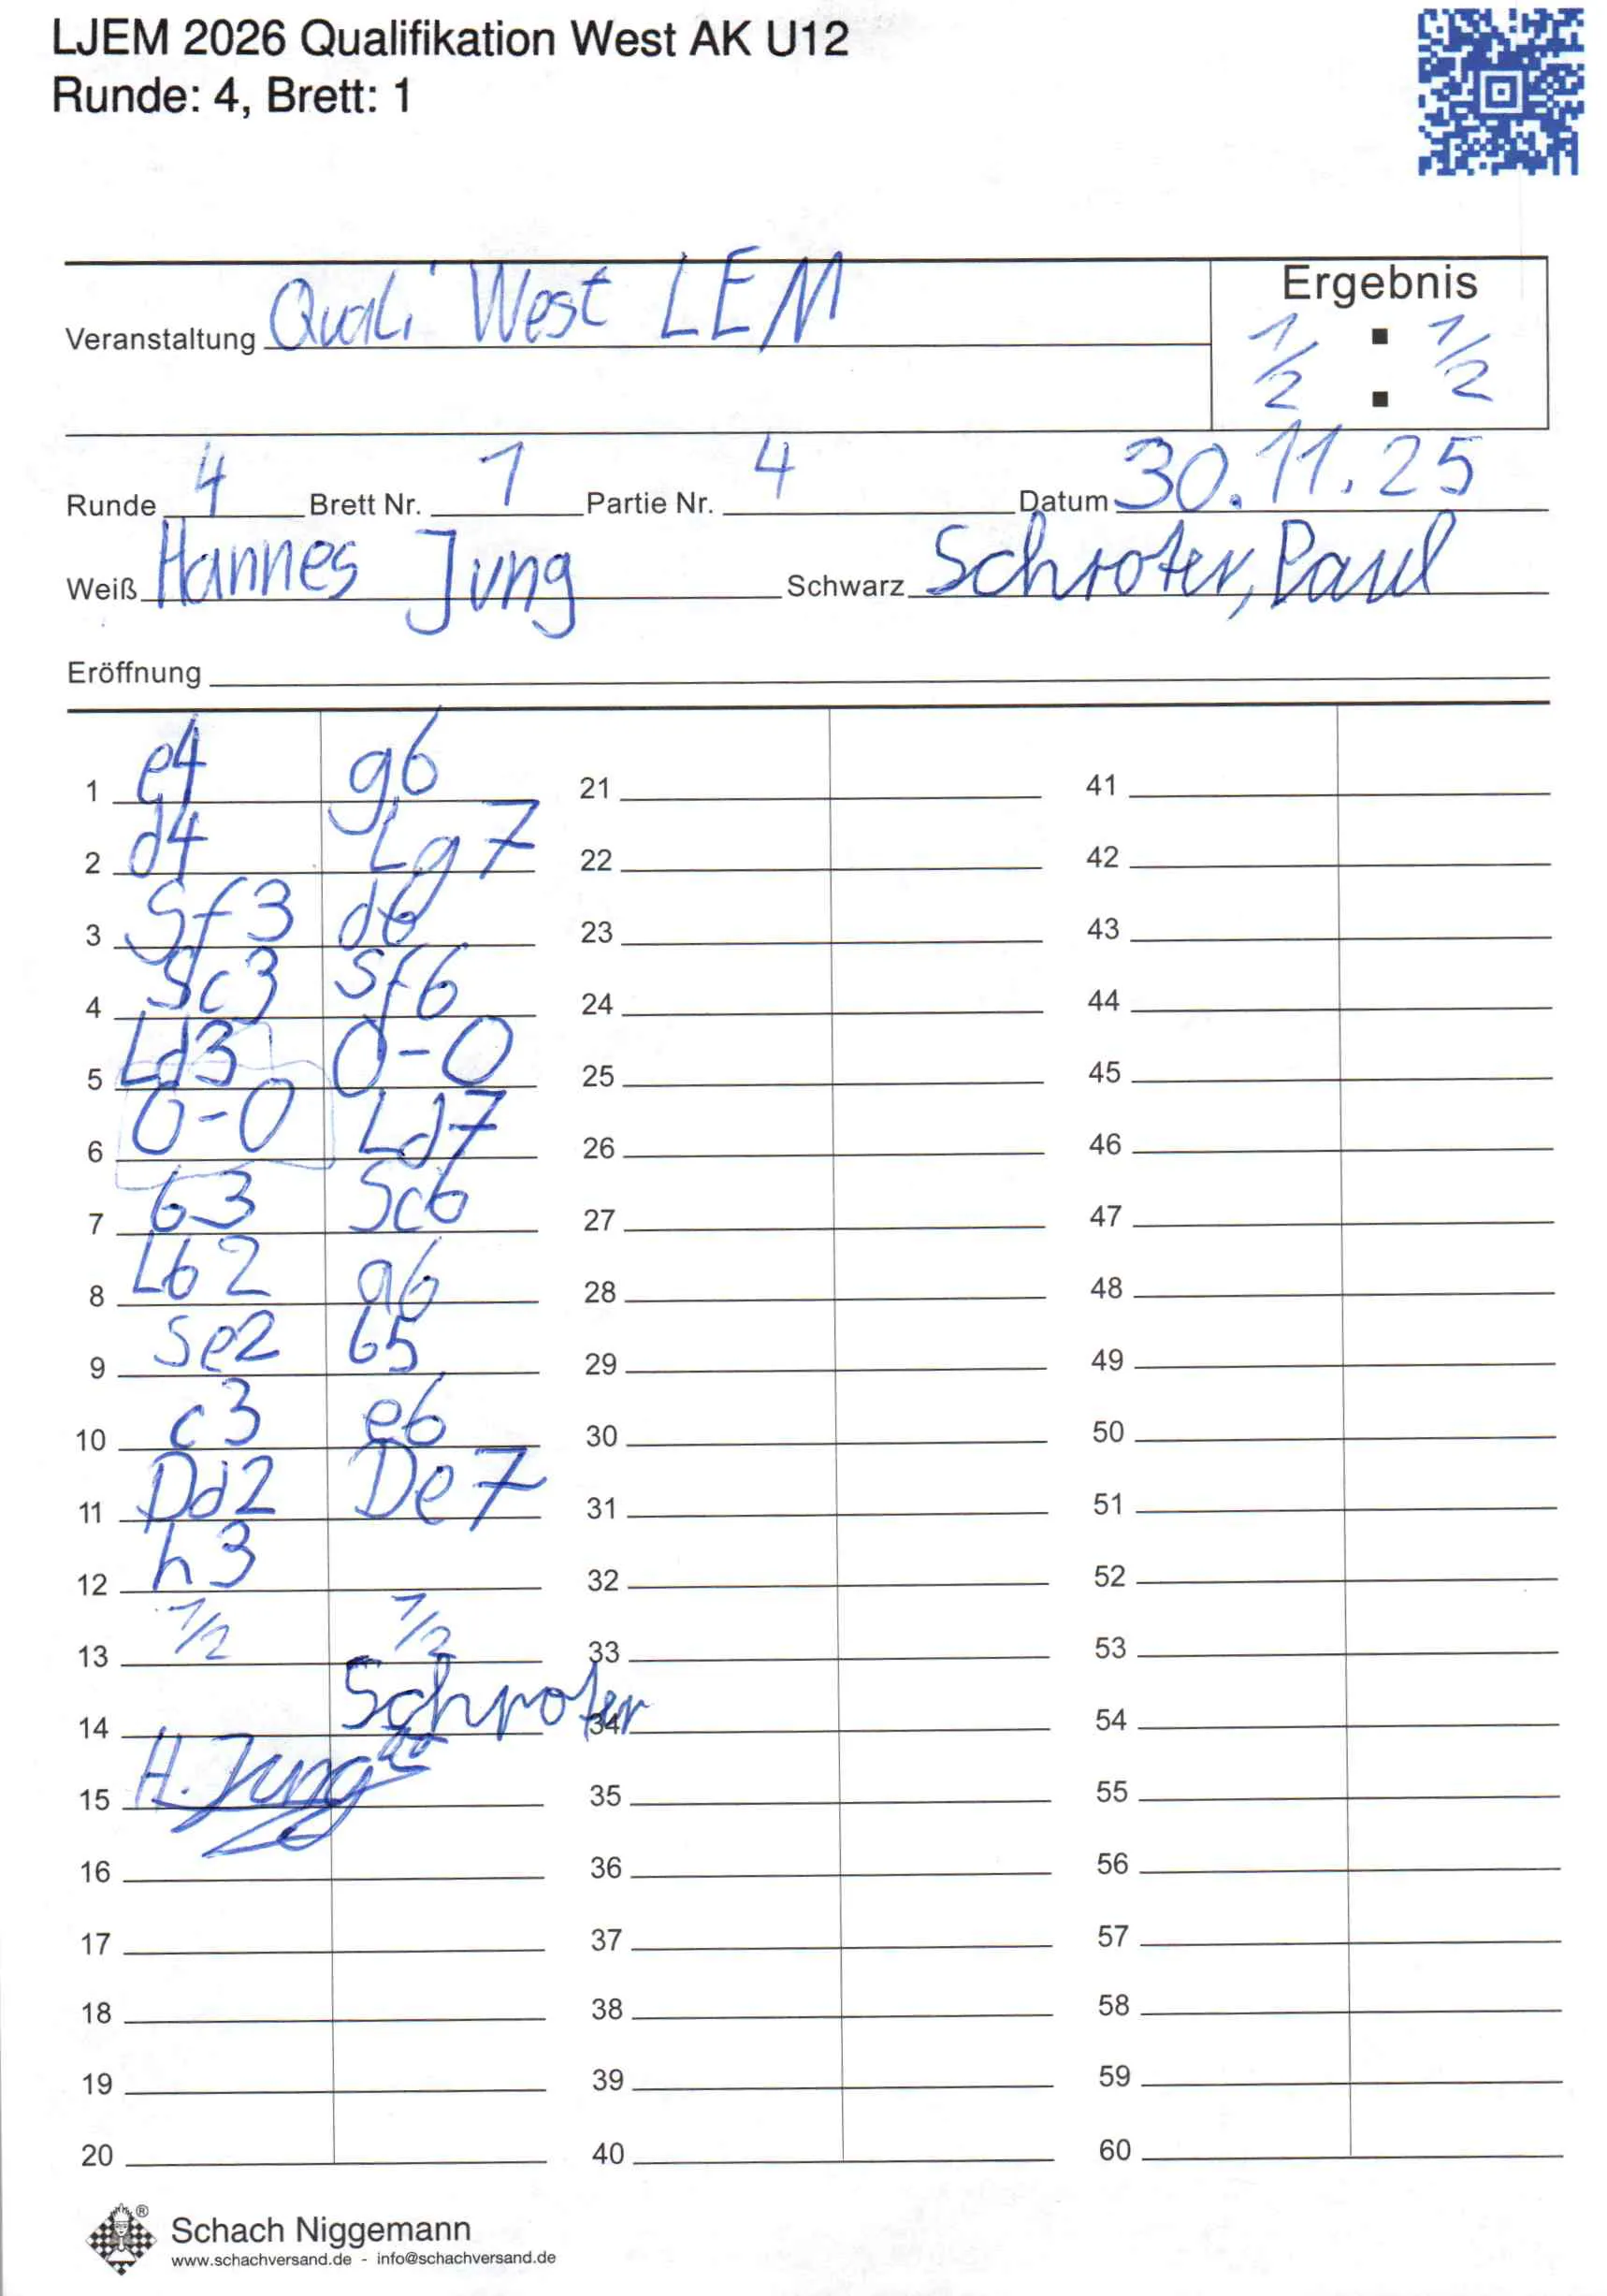 LJEM 2026 Qualifikation West AK U12
Runde: 4, Brett: 1
Veranstaltung Quali West LEM
Ergebnis
1/2 : 1/2
Runde 4 Brett Nr. 1 Partie Nr. 4 Datum 30.11.25
Weiß Hannes Jung Schwarz Schroter, Paul
Eröffnung
1 e4 g6 21 41
2 d4 Lg7 22 42
3 Sf3 d6 23 43
4 Sc3 Sf6 24 44
5 Ld3 0-0 25 45
6 0-0 Ld7 26 46
7 b3 Sc6 27 47
8 Lb2 a6 28 48
9 Se2 b5 29 49
10 c3 e6 30 50
11 Dd2 De7 31 51
12 h3 32 52
13 1/2 1/2 33 53
14 Schroter 34 54
15 H. Jung 35 55
16 36 56
17 37 57
18 38 58
19 39 59
20 40 60
Schach Niggemann
www.schachversand.de - info@schachversand.de